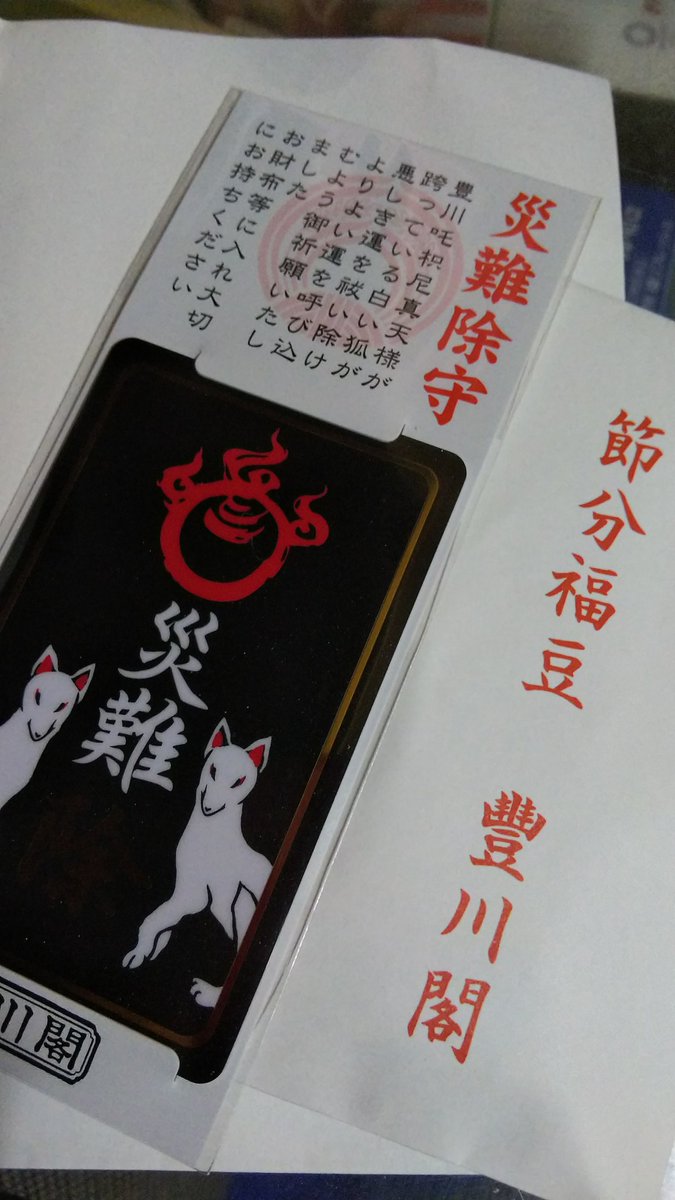 災難除守
豊川吒枳尼真天様が
跨っている白い狐が
悪しき運を祓い除け
よりよい運を呼び込
むよう御祈願いたし
ました
お財布等に入れ大切
にお持ちください
災難
川閣
節分福豆 豐川閣